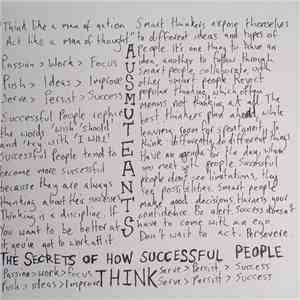 "Think like a man of action
Act like a man of thought"
Passion > Work > Focus
Push > Ideas > Improve
Serve > Persist > Success
Successful People replace
the words "wish" "should"
and "try" with "I Will"
Successful People tend to
become more successful
because they are always
thinking about their success
Thinking is a discipline. If
You want to be better at
it, you've got to work at it
AUSMUTEANTS
Smart thinkers expose themselves
to different ideas and types of
People. It's one thing to have an
idea, another to follow through
Smart people collaborate with
other smart people Reject
popular thinking which often
means not thinking at all. The
best thinkers plan ahead, while
leaving room for spontaneity
Think differently, do different things
Have an agenda for the day, when
you meet with people Successful
people don't see limitations, they
see possibilities. Smart people
make good decisions Harness your
confidence Be alert Success doesn't
have to come with an ego
Don't wait to act. Persevere
THE SECRETS OF HOW SUCCESSFUL PEOPLE
THINK
Passion > work > Focus
Push > Ideas > Improve
Serve > Persist > Success
Serve > Persist > Success